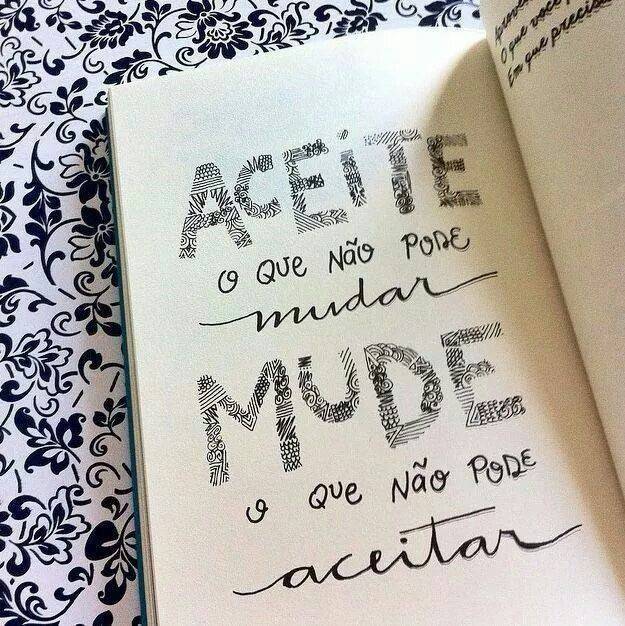 ACEiTE
O QUE NÃO PODE
mudar
MUDE
O QUE NÃO PODE
aceitar
O que você
Em que precisa